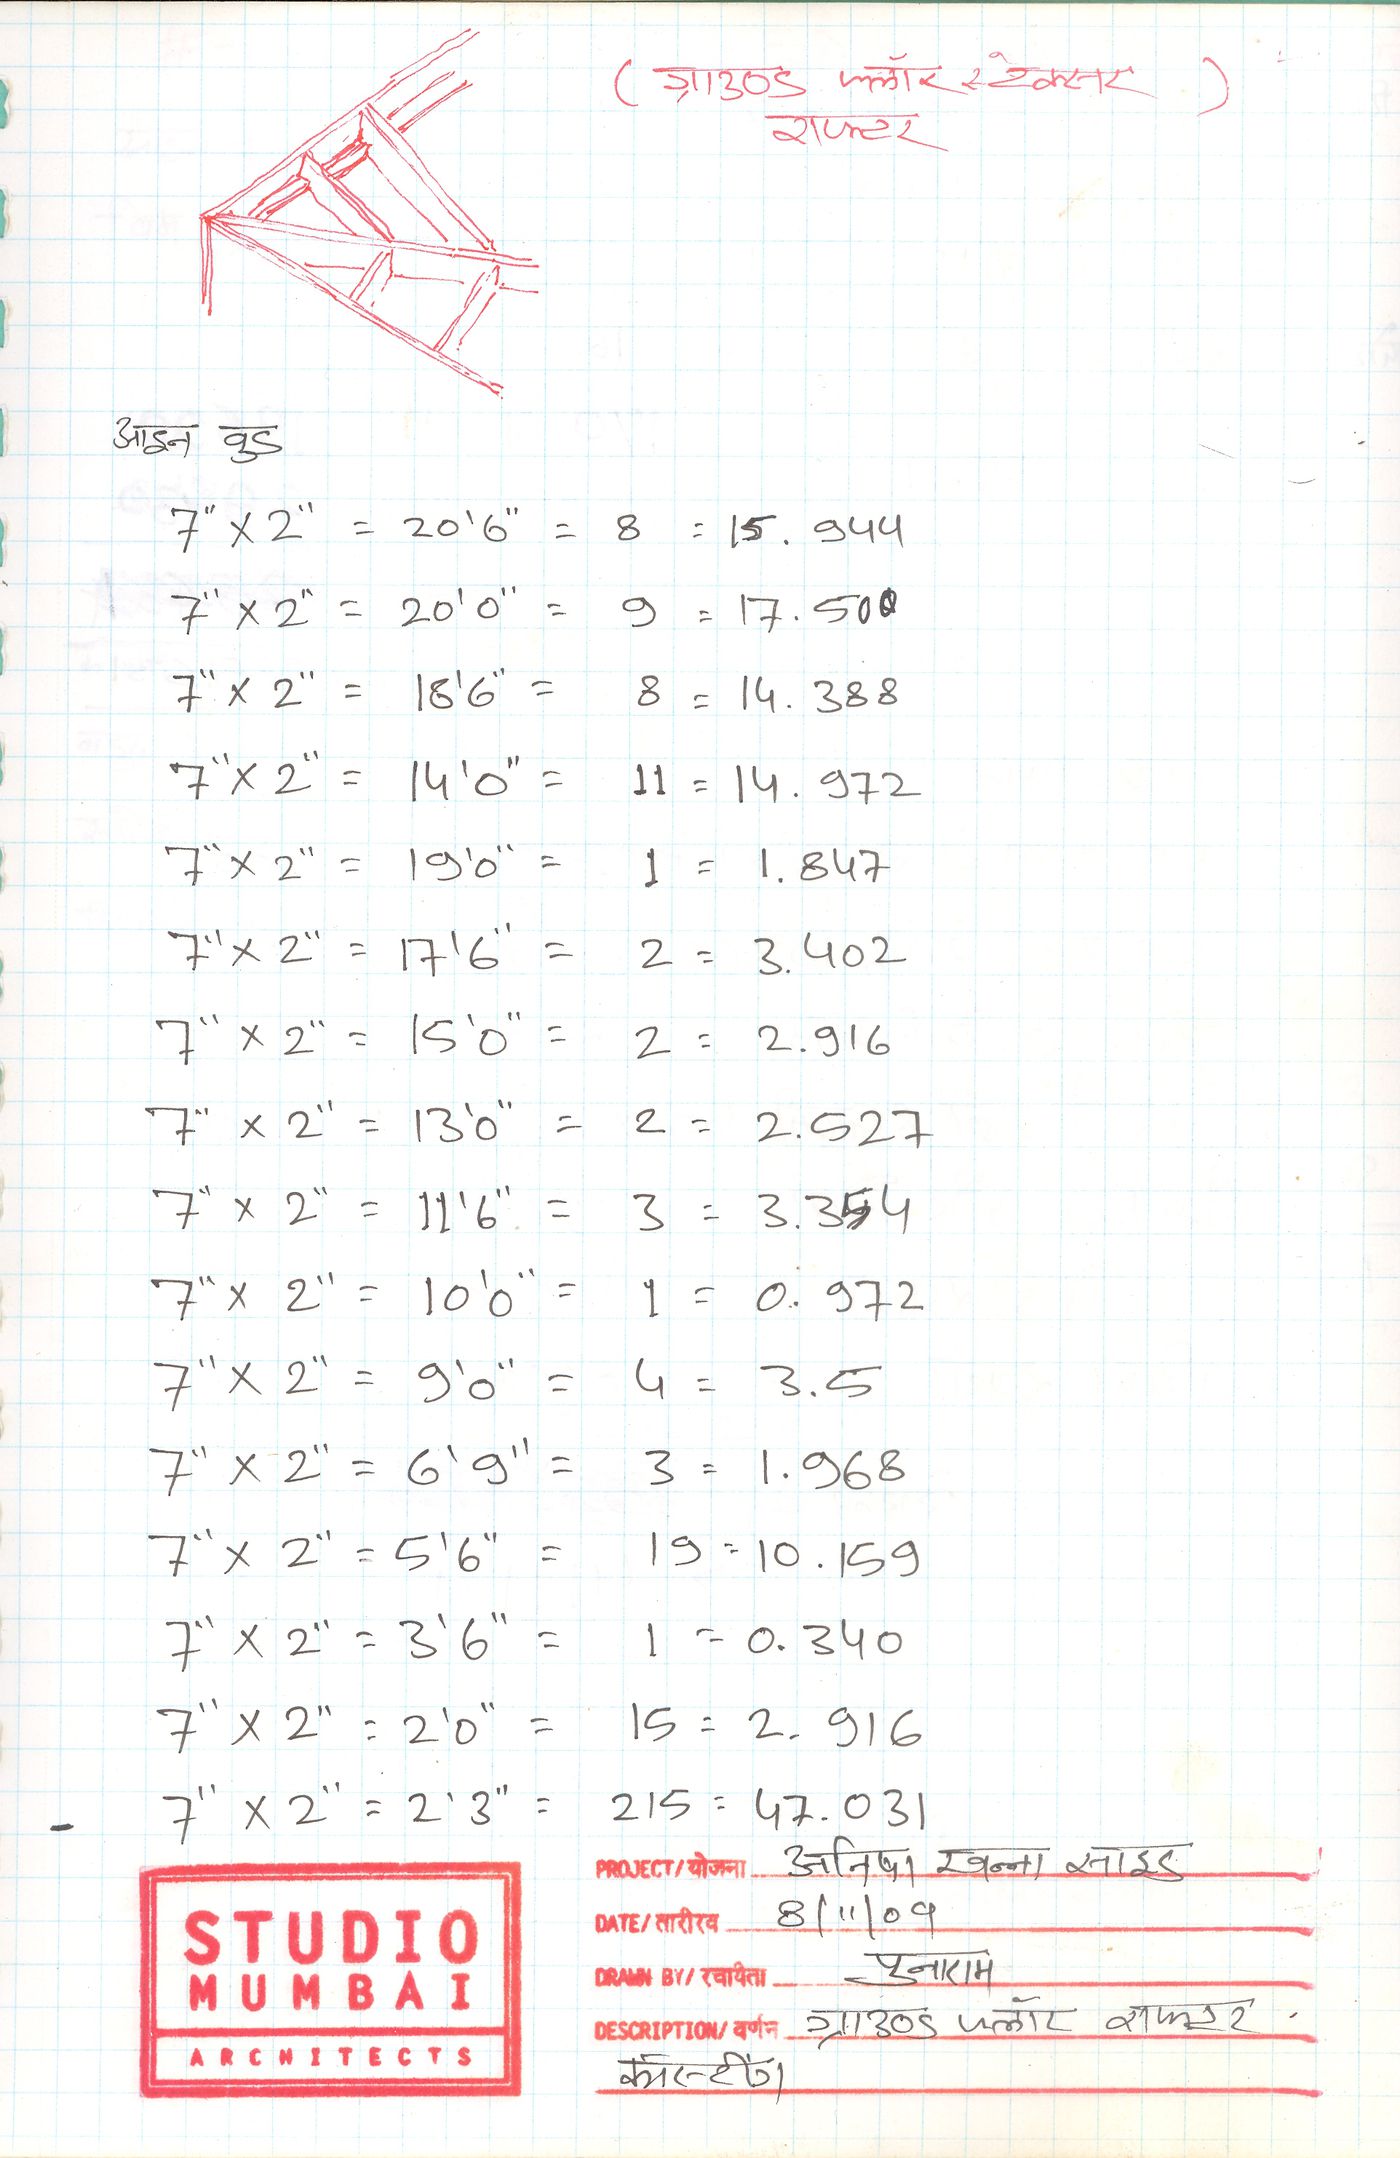 ( ग्राउण्ड फ्लॉर स्टेक्चर )
राफ्टर
आइन वुड
7" X 2" = 20'6" = 8 = 15.944
7" X 2" = 20'0" = 9 = 17.500
7" X 2" = 18'6" = 8 = 14.388
7" X 2" = 14'0" = 11 = 14.972
7" X 2" = 19'0" = 1 = 1.847
7" X 2" = 17'6" = 2 = 3.402
7" X 2" = 15'0" = 2 = 2.916
7" X 2" = 13'0" = 2 = 2.527
7" X 2" = 11'6" = 3 = 3.354
7" X 2" = 10'0" = 1 = 0.972
7" X 2" = 9'0" = 4 = 3.5
7" X 2" = 6'9" = 3 = 1.968
7" X 2" = 5'6" = 19 = 10.159
7" X 2" = 3'6" = 1 = 0.340
7" X 2" = 2'0" = 15 = 2.916
- 7" X 2" = 2'3" = 215 = 47.031
STUDIO
MUMBAI
ARCHITECTS
PROJECT/योजना अनिषा खन्ना साइड
DATE/तारीख 8/11/09
DRAWN BY/रचायेता पुनाराम
DESCRIPTION/वर्णन ग्राउण्ड फ्लॉर राफ्टर